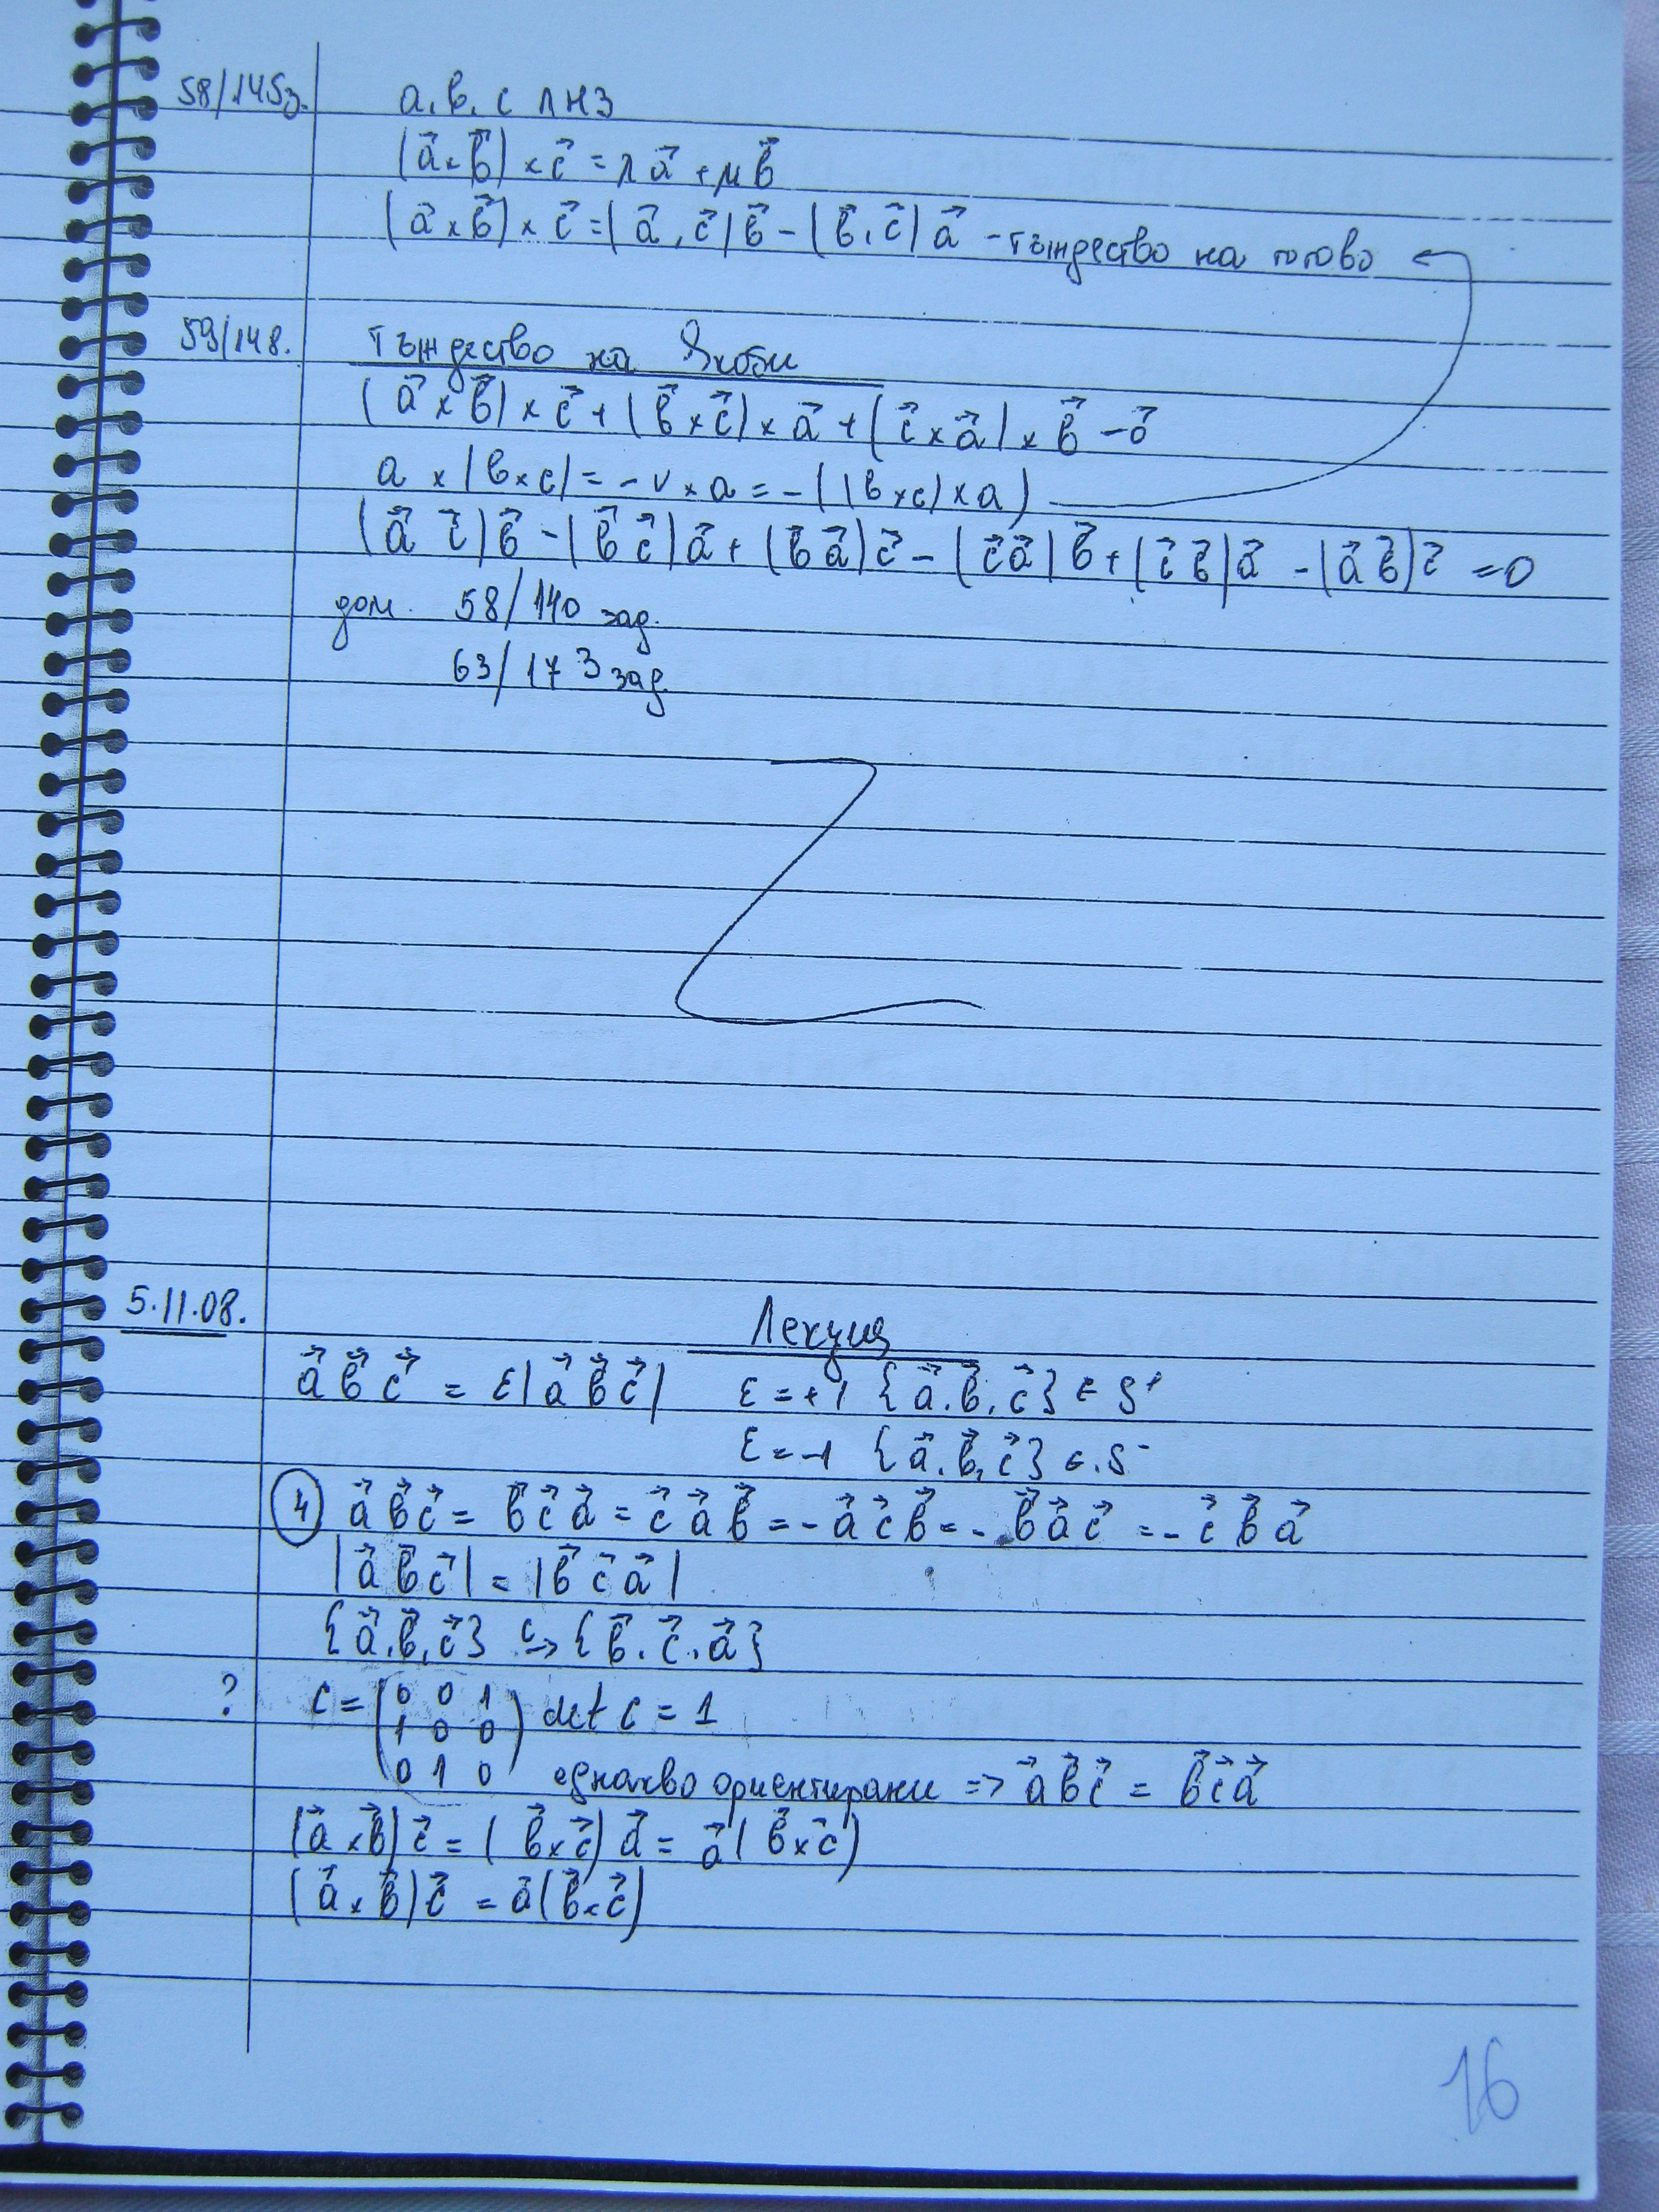 58/145з. a, b, c ЛНЗ
(a⃗×b⃗)×c⃗ = λa⃗ + μb⃗
(a⃗×b⃗)×c⃗ = (a⃗, c⃗)b⃗ − (b⃗, c⃗)a⃗ - тъждество на готово ←
59/148. тъждество на Якоби
(a⃗×b⃗)×c⃗ + (b⃗×c⃗)×a⃗ + (c⃗×a⃗)×b⃗ = o⃗
a × (b×c) = − v×a = −((b×c)×a)
(a⃗ c⃗)b⃗ − (b⃗ c⃗)a⃗ + (b⃗ a⃗)c⃗ − (c⃗ a⃗)b⃗ + (c⃗ b⃗)a⃗ − (a⃗ b⃗)c⃗ = 0
дом. 58/140 зад.
63/173 зад.
5.11.08. Лекция
a⃗ b⃗ c⃗ = ε|a⃗ b⃗ c⃗| ε = +1 {a⃗, b⃗, c⃗} ∈ S⁺
ε = −1 {a⃗, b⃗, c⃗} ∈ S⁻
④ a⃗ b⃗ c⃗ = b⃗ c⃗ a⃗ = c⃗ a⃗ b⃗ = − a⃗ c⃗ b⃗ = − b⃗ a⃗ c⃗ = − c⃗ b⃗ a⃗
|a⃗ b⃗ c⃗| = |b⃗ c⃗ a⃗|
{a⃗, b⃗, c⃗} c→ {b⃗, c⃗, a⃗}
? C = (0 0 1
1 0 0) det C = 1
0 1 0 еднакво ориентирани => a⃗ b⃗ c⃗ = b⃗ c⃗ a⃗
(a⃗×b⃗)c⃗ = (b⃗×c⃗)a⃗ = a⃗(b⃗×c⃗)
(a⃗×b⃗)c⃗ = a⃗(b⃗×c⃗)
16